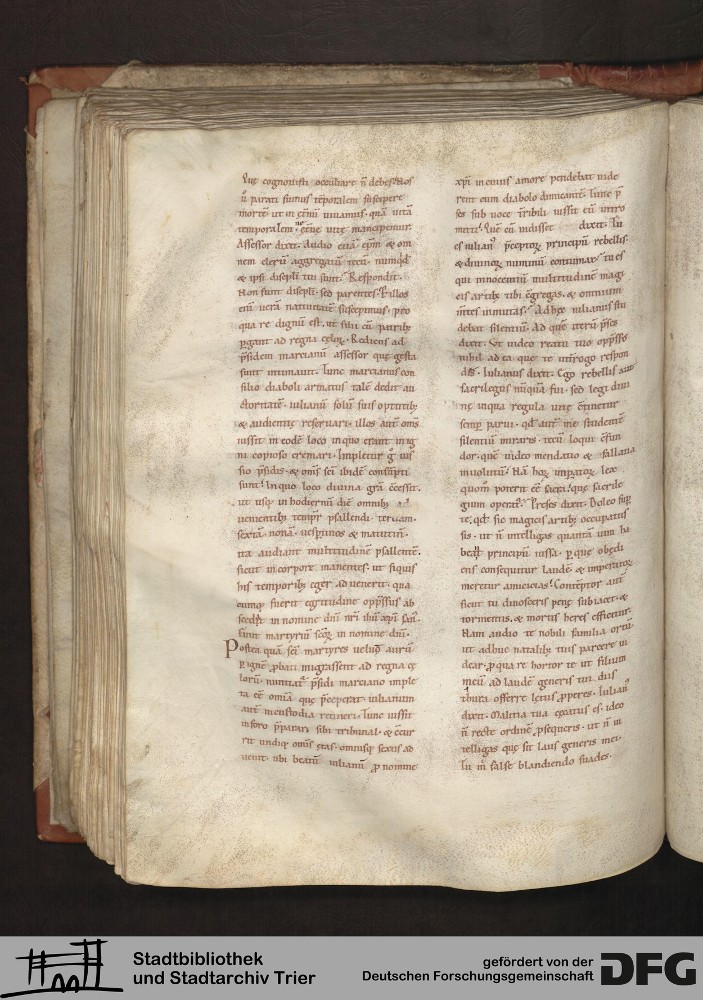 que cognovisti occultare ñ debes. Nos
ũ parati sumus tēporalem suscipere
mortē. ut in etnũ vivamus. quā vitā
temporalem etne vite mancipemur.
Assessor dixit. Audio etiā epm̄ & om
nem clerũ aggregatũ tecũ. numqd
& ipsi discpli tui sunt. Respondit.
Non sunt discpli. sed parentes. P illos
enī verā nativitatē suscepimus. pro
qua re dignũ est. ut filii cũ patrib;
pgant ad regna celoꝝ. Rediens ad
psidem marcianũ assessor que gesta
sunt intimavit. Tunc marcianus con
silio diaboli armatus talē dedit au
ctoritatē. iulianũ solũ suis optutib;
& audientie reservari. illos aut oms
iussit in eodē loco in quo erant in ig
ni copioso cremari. Impletur g ius
sio psidis. & oms sci ibidē consũpti
sunt. In quo loco divina grā ccessit.
ut usq; in hodiernũ diē omnib;
venientib; tempr psallendi. terciam.
sextā. nonā. vesptinos & matutin.
ita audiant multitudinē psallentē.
sicut in corpore manentes. ut siquis
his temporib; eger advenerit. qua
cumq; fuerit egritudine oppssus ab
scedat in nomine dnī nrī ihū xpī san.
Finit martyriũ scoꝝ in nomine dnī.
Postea quā sci martyres velud aurũ
p ignē pbati migrassent ad regna ce
lorũ. nuntiat psidi marciano imple
ta eē omīa que pceperat. iulianum
autē in custodia retineri. Tunc iussit
in foro pparari sibi tribunal. & ccur
rit undiq; omīs etas. omnisq; sexus ad
venit. ubi beatũ iulianũ p nomine
xpi in cuius amore pendebat vide
rent eum diabolo dimicantē. Tunc p
ses sub voce tribili iussit eũ intro
mitti. Quē cũ vidisset dixit. Tu
es iulianus pceptoꝝ principũ rebellis
& divinoꝝ numinũ contumax. tu es
qui innocentiũ multitudinē magi
cis artib; tibi cgregas. & omnium
mtes inmutas. Ad hec iulianus stu
debat silentiũ. Ad quē iterũ pses
dixit. Ut video reatu tuo oppsse
nihil ad ea que te intrrogo respon
des. Iulianus dixit. Ego rebellis aut
sacrilegus nũquā fui. sed legi divi
ne in qua regula vite ctinetur
semp parui. qd aut me studentē
silentiũ miraris. tecũ loqui cfun
dor. quē video mendatio & fallatia
involutũ. Nā hoꝝ impatoꝝ lex
quom poterit eē sacra. que sacrile
gium operat. Preses dixit. Doleo sup
te. qd sic magicis artib; occupatus
sis. ut ñ intelligas quantā vim ha
beat principũ iussa. p que obedi
ens consequitur laudē. & imperatoꝝ
meretur amicicias. Contēptor aut
sicut tu dinosceris pene subiacet. &
tormentis. & mortis heres efficitur.
Nam audio te nobili familia ortũ.
ut adhuc natalib; tuis parcere vi
dear. p qua re hortor te ut filium
meũ ad laudē generis tui. diis
thura offerre letus pperes. Iulianus
dixit. Malitia tua cecatus es. ideo
ñ recte ordinē psequeris. ut ñ in
telligas que sit laus generis mei.
Tu m̄ false blandiendo suades.
Stadtbibliothek
und Stadtarchiv Trier
gefördert von der
Deutschen Forschungsgemeinschaft
DFG